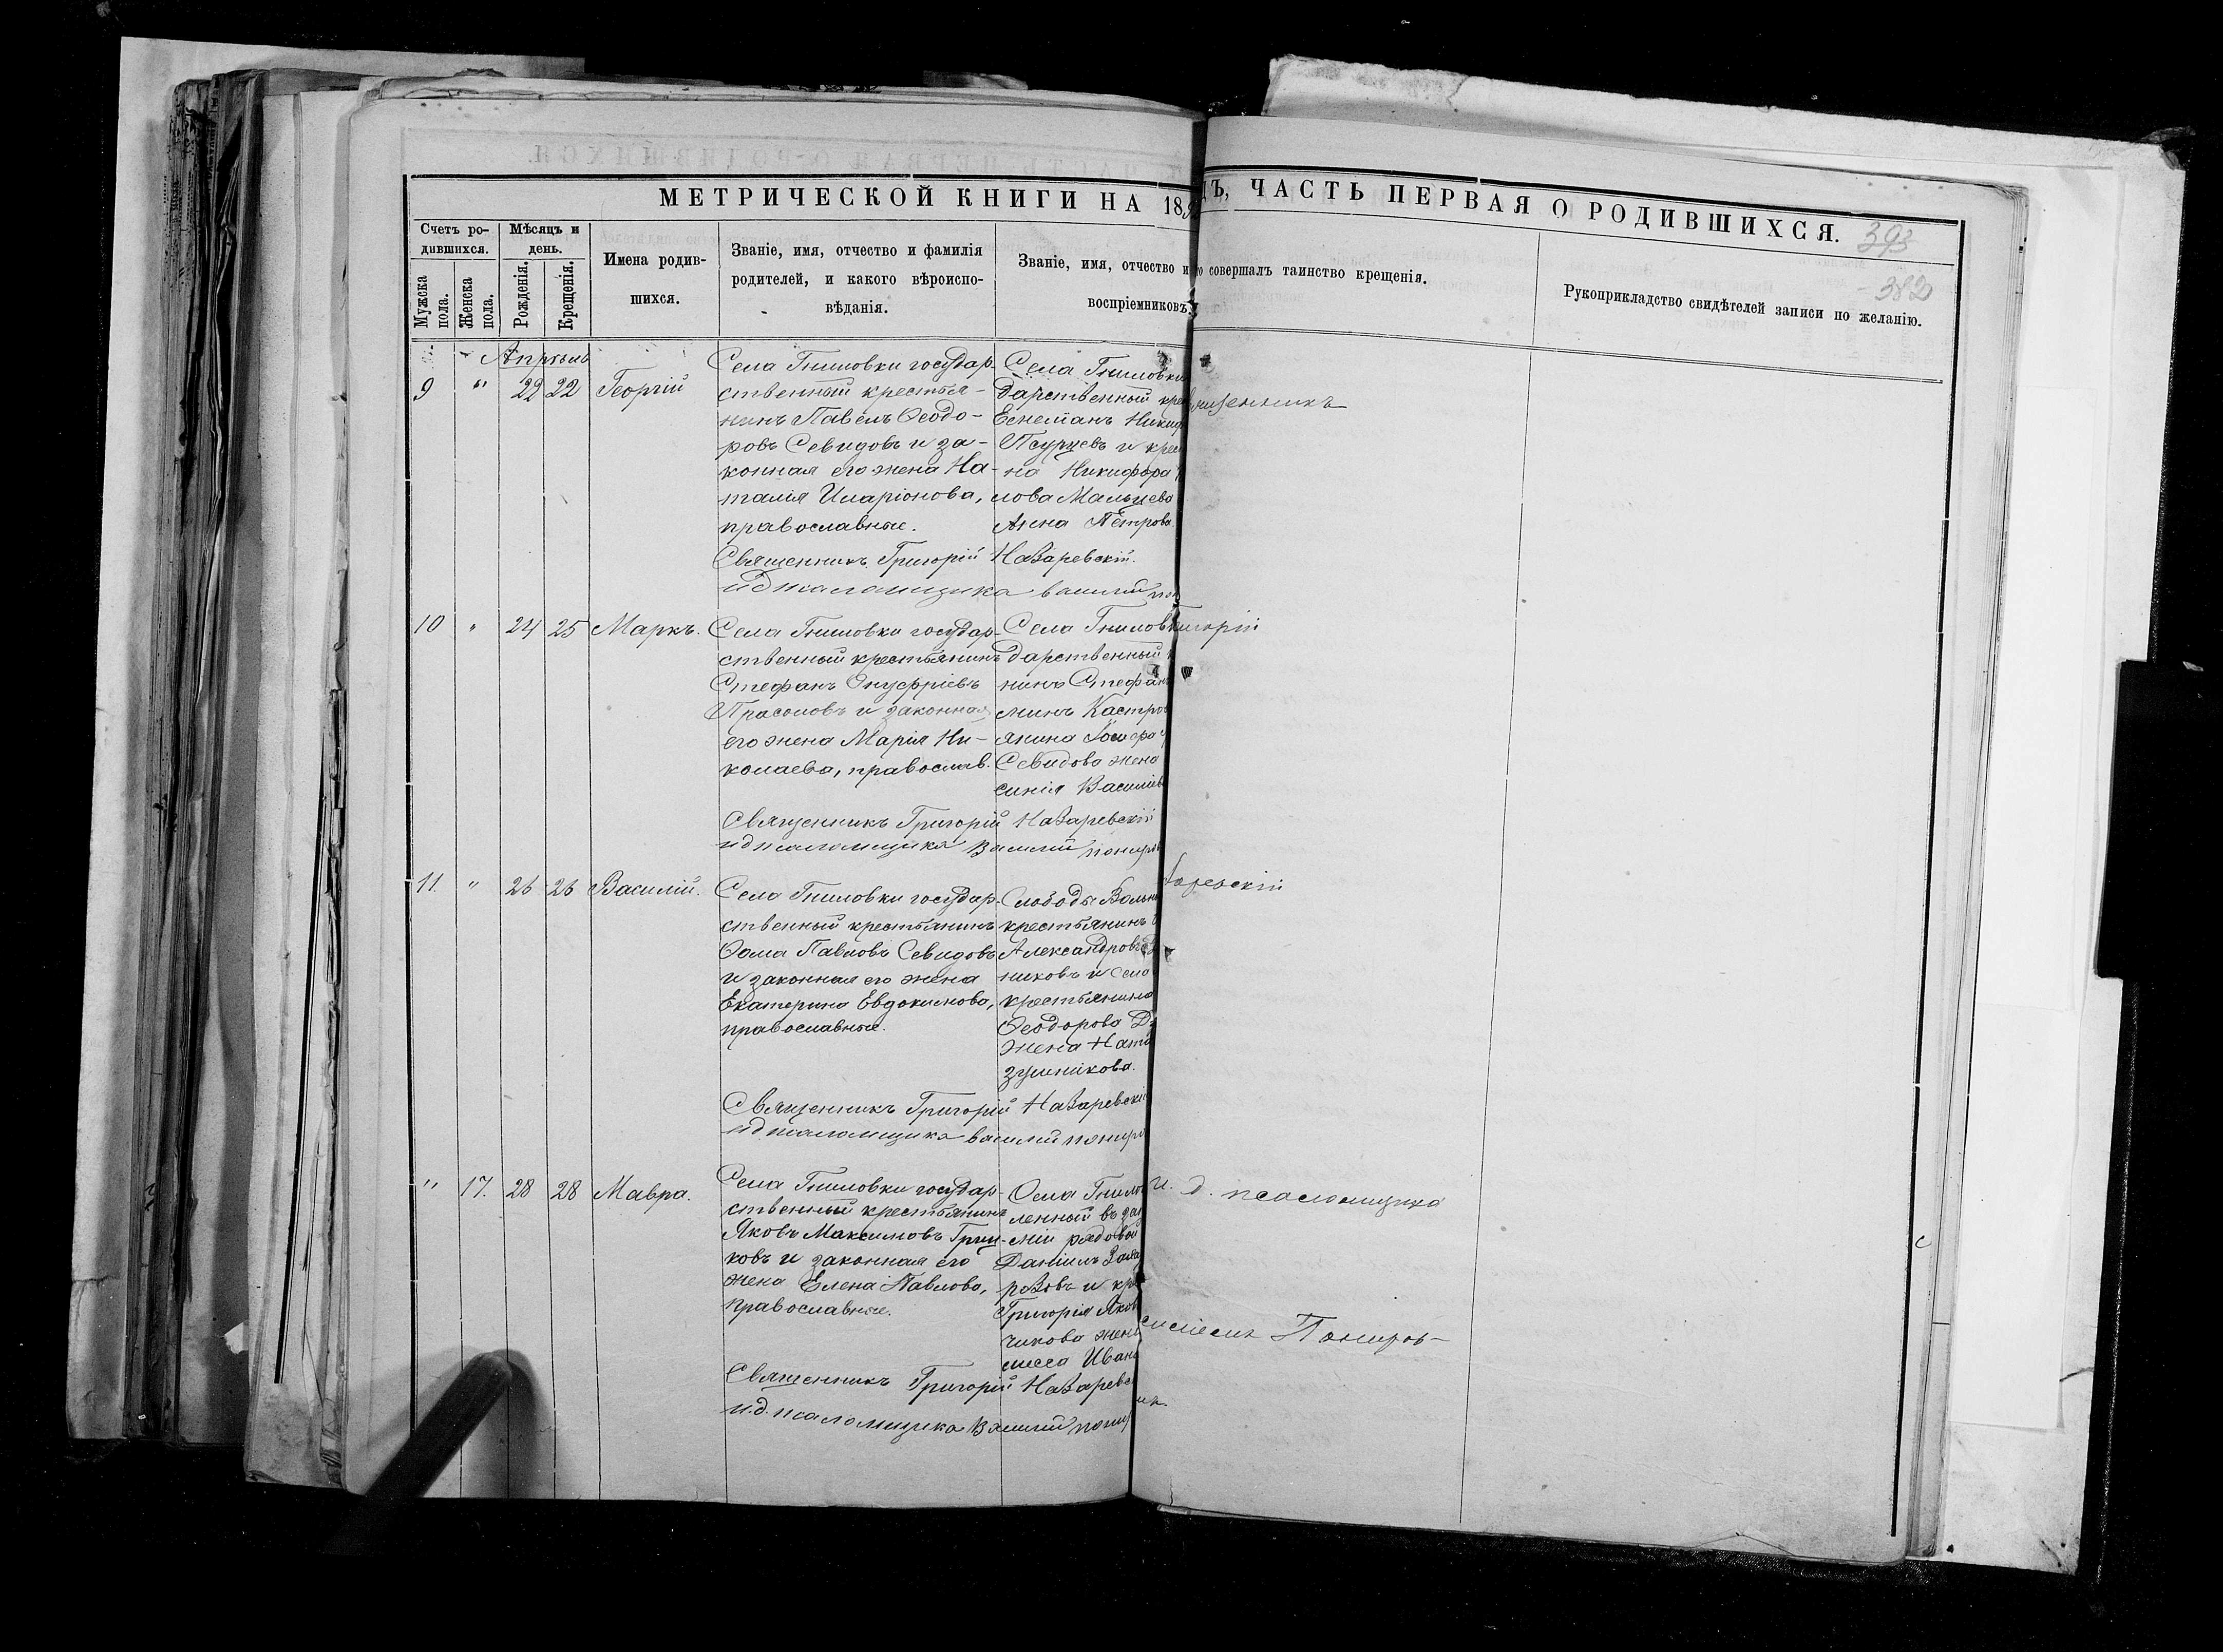 МЕТРИЧЕСКОЙ КНИГИ НА 18
Ъ, ЧАСТЬ ПЕРВАЯ О РОДИВШИХСЯ.
393
382
Счетъ ро-
дившихся.
Мужска
пола.
Женска
пола.
Мѣсяцъ и
день.
Рожденія.
Крещенія.
Имена родив-
шихся.
Званіе, имя, отчество и фамилія
родителей, и какого вѣроиспо-
вѣданія.
Званіе, имя, отчество и
воспріемниковъ
совершалъ таинство крещенія.
Рукоприкладство свидѣтелей записи по желанію.
Апрѣль
9 " 22 22 Георгій
Села Гниловки государ-
ственный крестья-
нинъ Павелъ Ѳеодо-
ровъ Севидовъ и за-
конная его жена На-
талія Иларіонова,
православные.
Села Гниловки
дарственный кре
Никиф
и крес
на Никифора
лова Мальцева
Анна Петрова.
Священникъ Григорій Назаревскій.
и д псаломщика Василий
10 " 24 25 Маркъ.
Села Гниловки государ-
ственный крестьянинъ
Стефанъ Онуфріевъ
Прасоловъ и законная
его жена Марія Ни-
колаева, православ.
Села Гниловк
дарственный
нинъ Стефан
минъ Кастров
янина
Севидова жена
синія Василіев
Священникъ Григорій Назаревскій
и д псаломщика Василий Понир
11. " 26 26 Василій.
Села Гниловки государ-
ственный крестьянинъ
Ѳома Павловъ Севидовъ
и законная его жена
Екатерина Евдокимова,
православные.
Слободы Вольн
крестьянинъ
Александровъ
никовъ и села
крестьянина
Ѳеодорова
жена Ната
зуленикова.
Священникъ Григорій Назаревскі
и д псаломщика Василий Понир
" 17. 28 28 Мавра.
Села Гниловки государ-
ственный крестьянинъ
Яковъ Максимовъ
ковъ и законная его
жена Елена Павлова,
православные.
Села Гнило
ленный въ зап
сній рядовой
Даніилъ
ровъ и кр
Григорія Яков
чикова жена
Иван
Священникъ Григорій Назаревс
и.д. псаломщика Василий Пони
щенникъ
игорій
аревскій
и. д. псаломщика
Пониров-